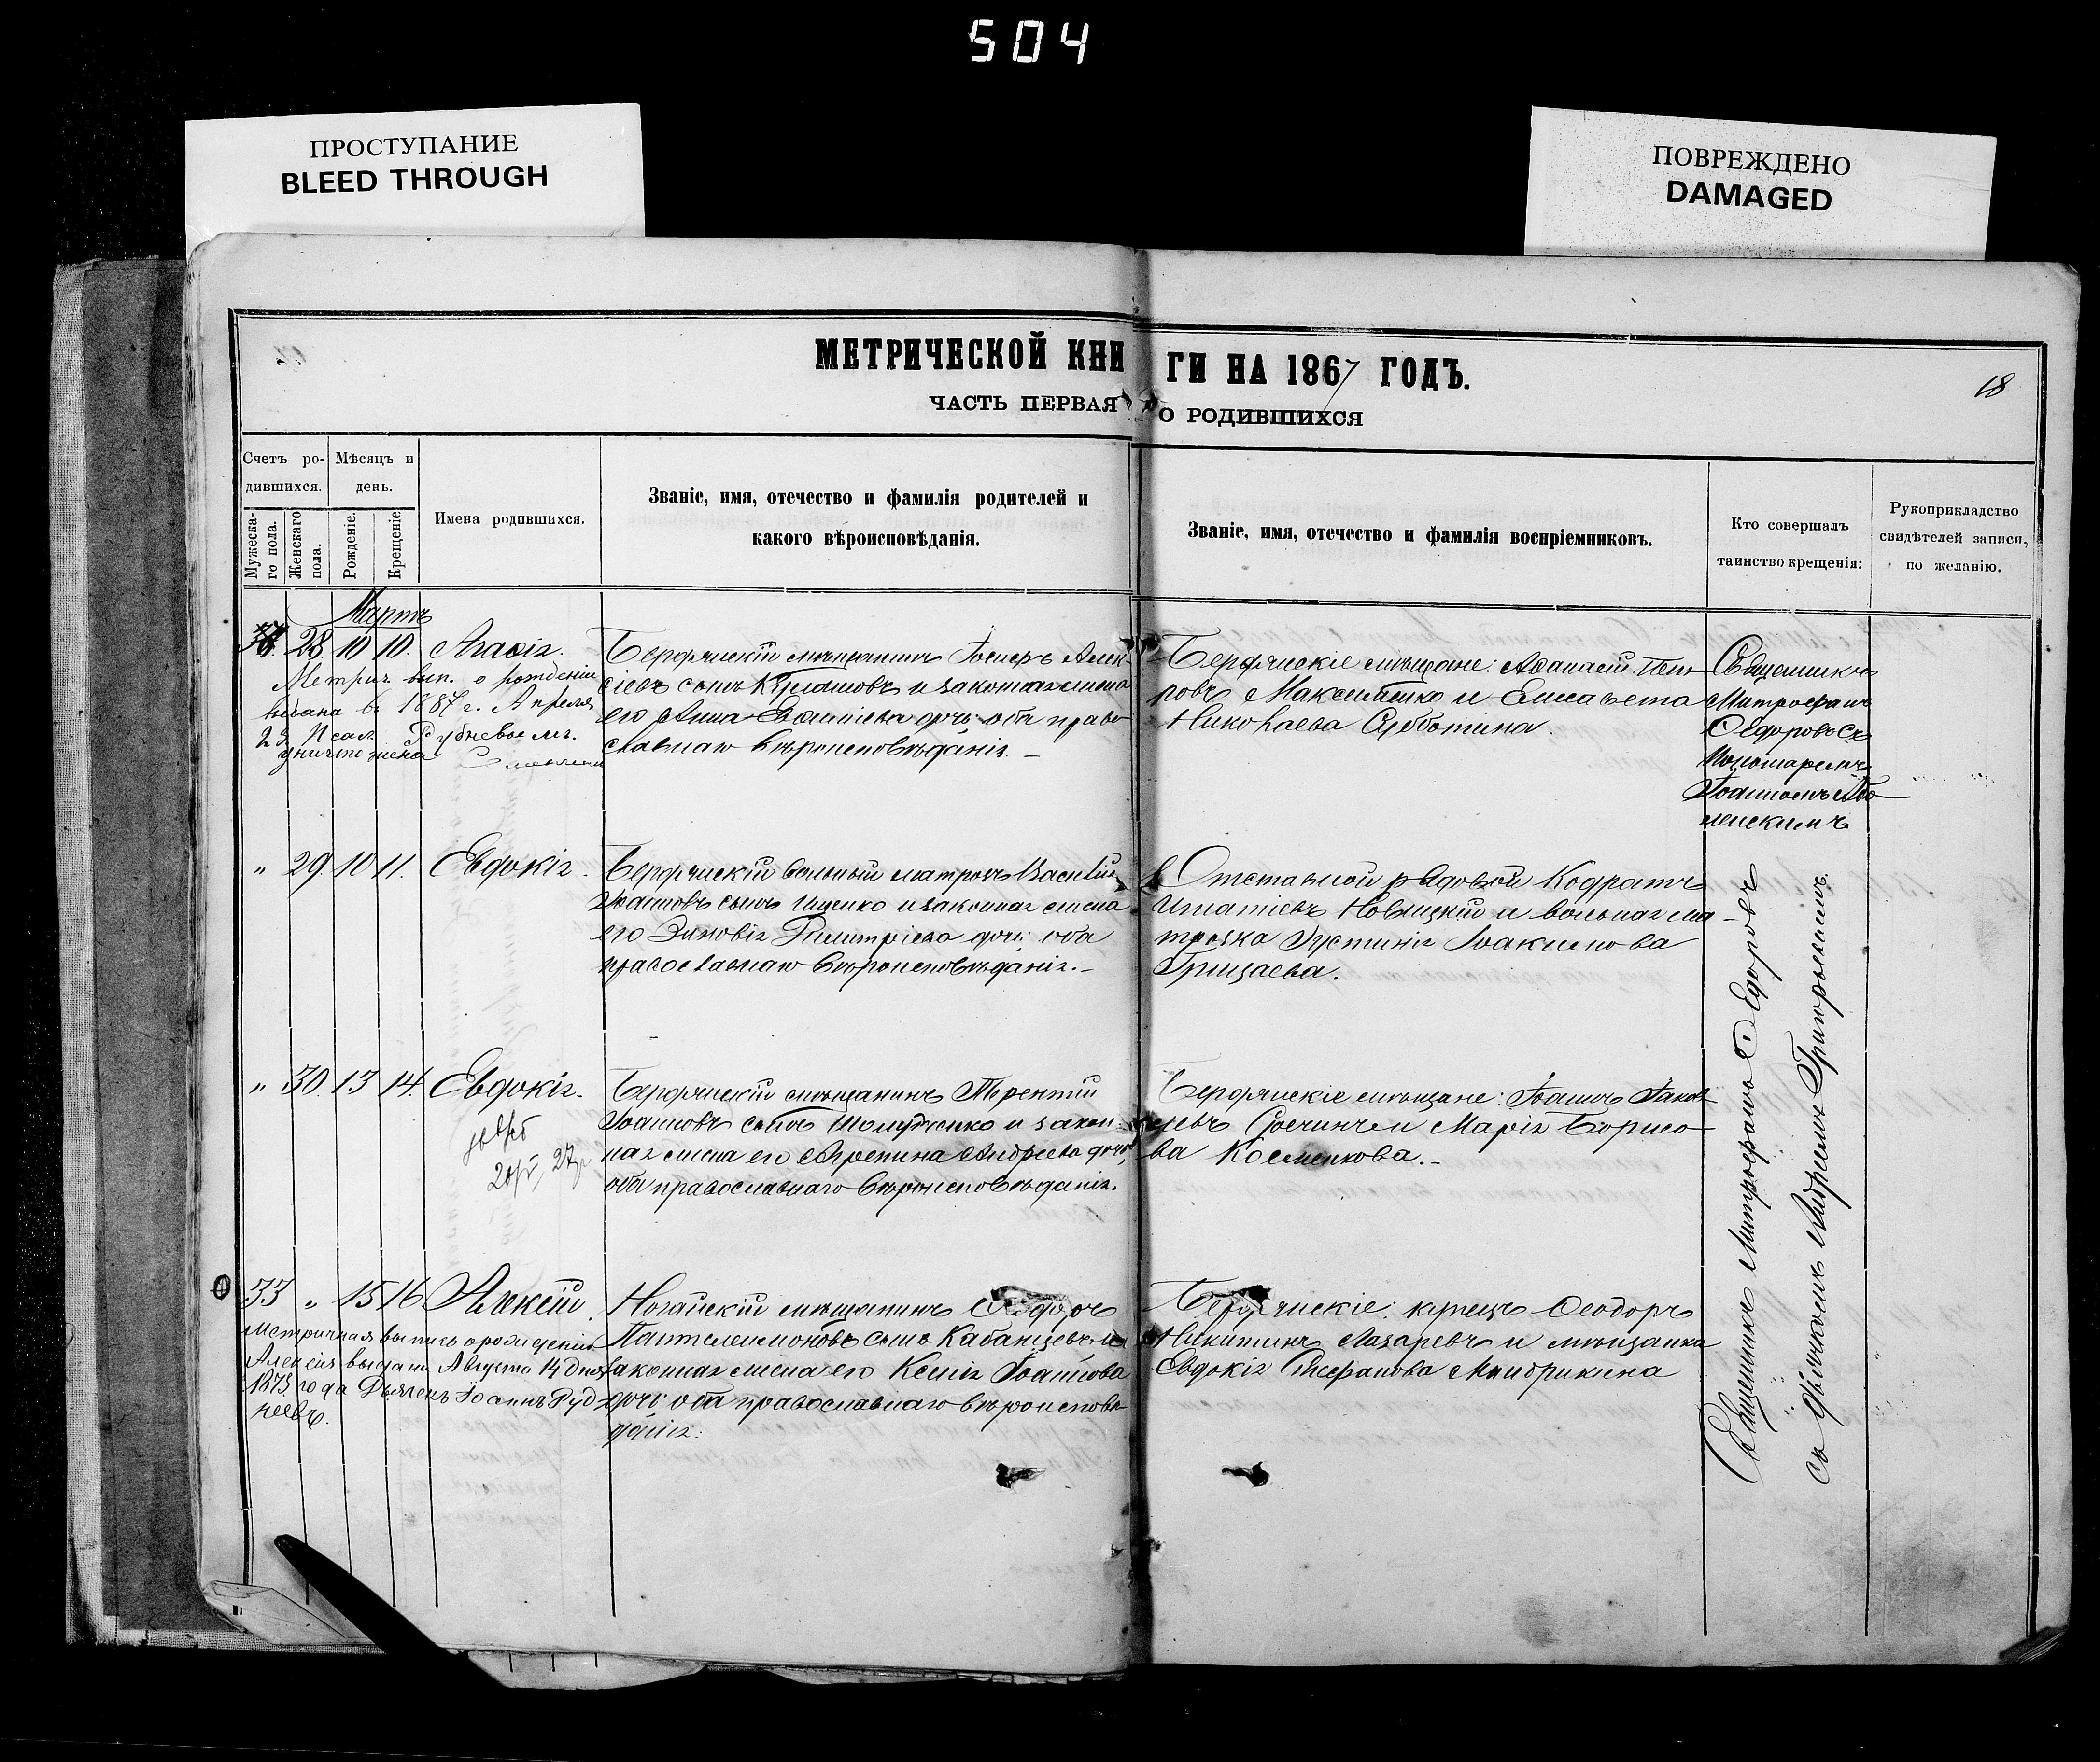 504
ПРОСТУПАНИЕ
BLEED THROUGH
ПОВРЕЖДЕНО
DAMAGED
МЕТРИЧЕСКОЙ КНИГИ НА 1867 ГОДЪ.
18
ЧАСТЬ ПЕРВАЯ О РОДИВШИХСЯ
Счетъ ро-
дившихся.
Мужеска-
го пола.
Женскаго
пола.
Мѣсяцъ и
день.
Рожденіе.
Крещеніе
Имена родившихся.
Званіе, имя, отечество и фамилія родителей и
какого вѣроисповѣданія.
Званіе, имя, отечество и фамилія воспріемниковъ.
Кто совершалъ
таинство крещенія:
Рукоприкладство
свидѣтелей записи,
по желанію.
Мартъ
28 10 10.
Метрич. вып. о рожденіи
выдана въ 1887 г. Апреля
23 Псал.
Бердянскій мѣщанинъ
сынъ и законная жена
его Анна дочь оба право-
славнаго вѣроисповѣданія.
Бердянскіе мѣщане: Аѳанасій Пет-
ровъ Максименко и Елисавета
Николаева Субботина.
Священникъ
Митрофанъ
Ѳедоровъ съ
Пономаремъ
Іоанномъ
„ 29 10 11. Евдокія.
Бердянскій вольный матросъ Василій
Іоанновъ сынъ Ищенко и законная жена
его Зиновія Димитріева дочь оба
православнаго вѣроисповѣданія.
Отставной рядовой Кодратъ
Игнатіевъ Новицкій и вольная ма-
троска Іустинія Іоакимова
Грицаева.
„ 30. 13 14. Евдокія.
Бердянскій мѣщанинъ Терентій
Іоанновъ сынъ и закон-
ная жена его Агрепина Андреева дочь,
оба православнаго вѣроисповѣданія.
Бердянскіе мѣщане: Іоаннъ Іаков-
левъ и Марія Борисо-
ва
33 „ 15 16 Алексій.
Метричная выпись о рожденіи
Алексія выдана Августа 14 дня
1873 года Дьячекъ Іоаннъ Руд-
неевъ.
Ногайскій мѣщанинъ Ѳеодоръ
Пантелеимоновъ сынъ Кабанцевъ и
законная жена его Ксенія Іоаннова
дочь оба православнаго вѣроисповѣ-
данія.
Бердянскіе: купецъ Ѳеодоръ
Никитинъ Лазаревъ и мѣщанка
Евдокія Стефанова Мандрикина
Священникъ Митрофанъ Ѳедоровъ
съ дьячкомъ Андреемъ Григорьевымъ.